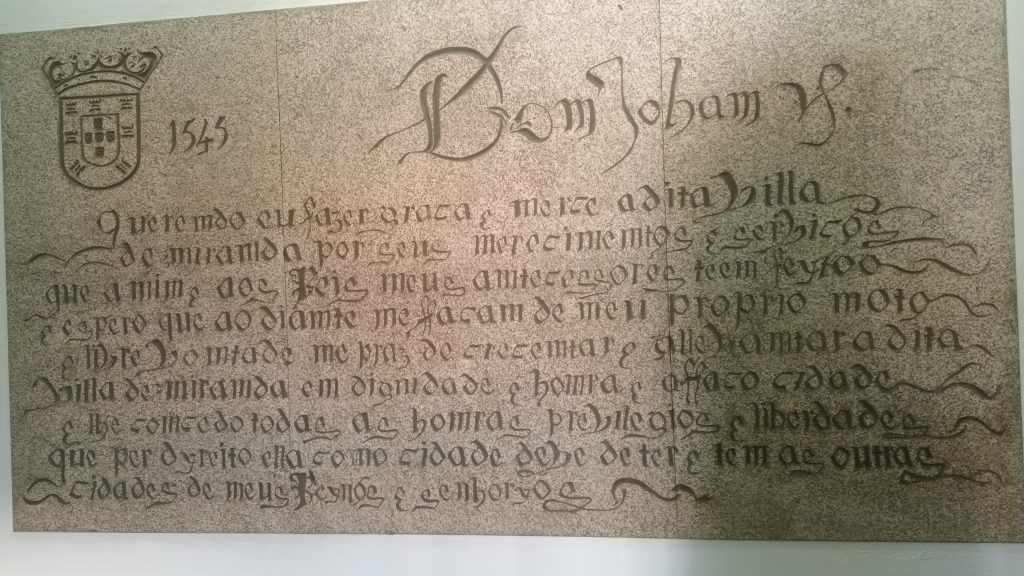 1545
Dom Joham
Queremdo eu fazer graca e merce a dita Villa
de miramda por seus merecimemtos e serviços
que a mim e aos Reis meus amtecessores teem feytoo
e espero que ao diamte me ffacam de meu proprio moto
e libre vomtade me praz de crecemtar e allevamtar a dita
Villa de miramda em dignidade e homra e a ffaco cidade
e lhe comcedo todas as homras previlegios e liberdades
que per dyreito ella como cidade deve de ter e tem as outras
cidades de meus Reynos e senhoryos